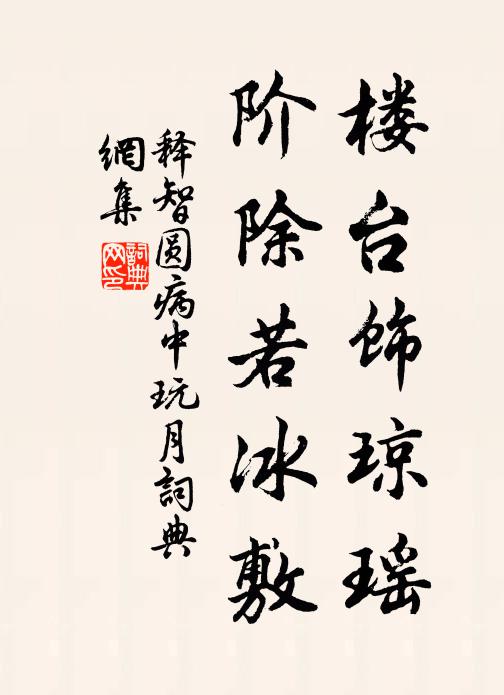 楼台饰琼瑶
阶除若冰敷
释智圆病中玩月詞典
網集
詞典
网印